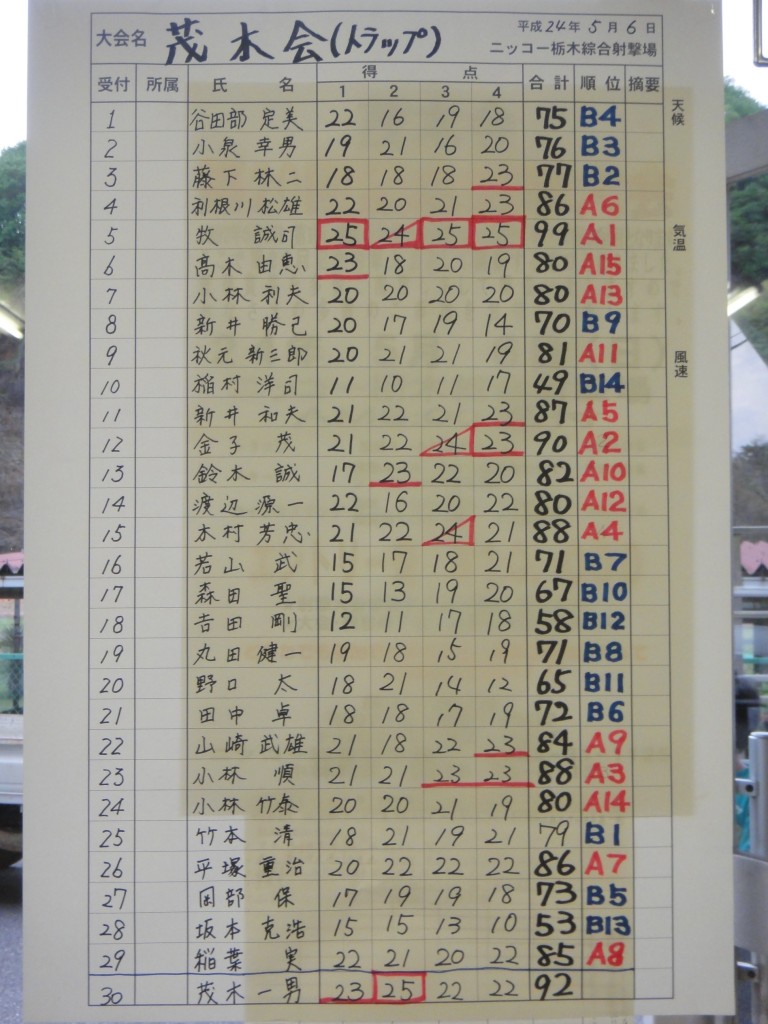 大会名 茂木会(トラップ) 平成24年5月6日
ニッコー栃木綜合射撃場
受付 所属 氏名 得点 合計 順位 摘要
1 2 3 4
1 谷田部 定美 22 16 19 18 75 B4
2 小泉 幸男 19 21 16 20 76 B3
3 藤下 林二 18 18 18 23 77 B2
4 利根川 松雄 22 20 21 23 86 A6
5 牧 誠司 25 24 25 25 99 A1
6 高木 由恵 23 18 20 19 80 A15
7 小林 利夫 20 20 20 20 80 A13
8 新井 勝己 20 17 19 14 70 B9
9 秋元 新三郎 20 21 21 19 81 A11
10 稲村 洋司 11 10 11 17 49 B14
11 新井 和夫 21 22 21 23 87 A5
12 金子 茂 21 22 24 23 90 A2
13 鈴木 誠 17 23 22 20 82 A10
14 渡辺 源一 22 16 20 22 80 A12
15 木村 芳忠 21 22 24 21 88 A4
16 若山 武 15 17 18 21 71 B7
17 森田 聖 15 13 19 20 67 B10
18 吉田 剛 12 11 17 18 58 B12
19 丸田 健一 19 18 15 19 71 B8
20 野口 太 18 21 14 12 65 B11
21 田中 卓 18 18 17 19 72 B6
22 山崎 武雄 21 18 22 23 84 A9
23 小林 順 21 21 23 23 88 A3
24 小林 竹泰 20 20 21 19 80 A14
25 竹本 清 18 21 19 21 79 B1
26 平塚 重治 20 22 22 22 86 A7
27 岡部 保 17 19 19 18 73 B5
28 坂本 克浩 15 15 13 10 53 B13
29 稲葉 実 22 21 20 22 85 A8
30 茂木 一男 23 25 22 22 92
天候
気温
風速